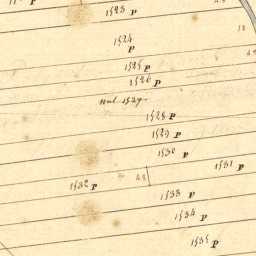 1523 p
1524 p
1525 p
1526 p
nul. 1527.
1528 p
1529 p
1530 p
1531 p
1532 p
1533 p
1534 p
1535 p